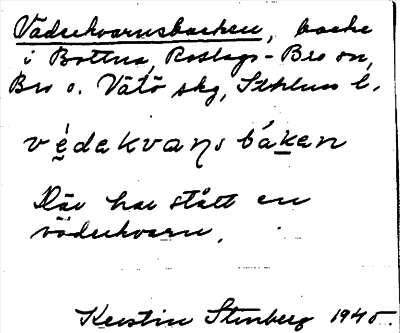 Väderkvarnsbacken, backe
i Bottna, Roslags-Bro sn,
Bro o. Vätö skg, Sthlms l.
vèdakvans bákan
Där har stått en
väderkvarn.
Kerstin Stenberg 1945.